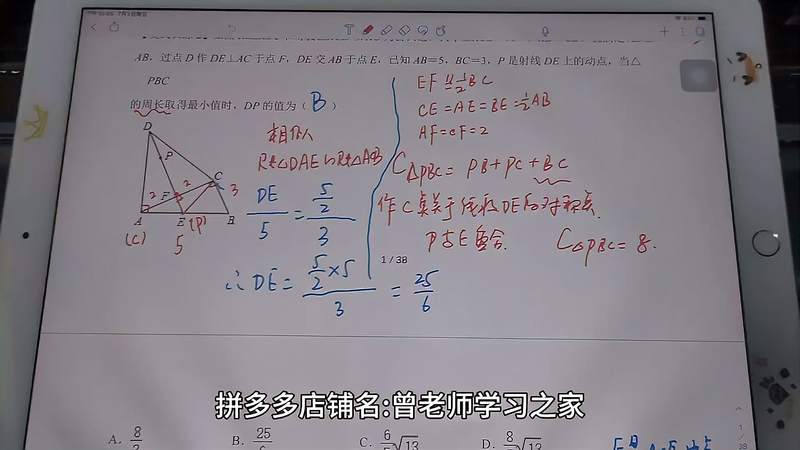 AB，过点 D 作 DE⊥AC 于点 F，DE 交 AB 于点 E，已知 AB=5，BC=3，P 是射线 DE 上的动点，当△
PBC
的周长取得最小值时，DP 的值为（ B ）
EF ∥= 1/2 BC
CE=AE=BE=1/2AB
AF=CF=2
C△PBC= PB+PC+BC
作C点关于线段DE的对称点.
P与E重合. C△PBC=8.
相似
Rt△DAE∽Rt△ACB
DE/5 = (5/2)/3
∴DE= (5/2×5)/3 = 25/6
D
P
C
3
2
F
2
A
E
B
(C)
(P)
5
1/38
拼多多店铺名:曾老师学习之家
A. 8/3
B. 25/6
C. 6/5√13
D. 8/5√13